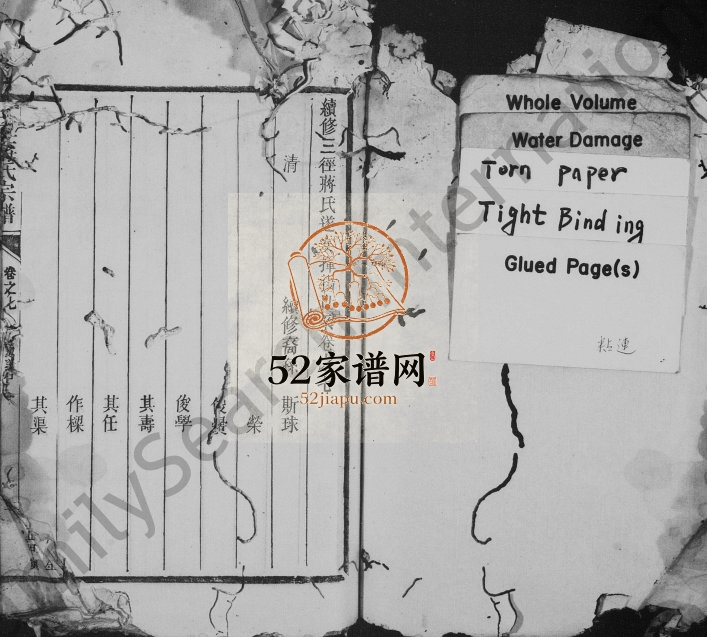 Whole Volume
Water Damage
Torn paper
Tight Binding
Glued Page(s)
粘連
續修三徑蔣氏
清
續修裔孫
斯球
榮
俊學
其壽
其任
作樑
其渠
氏宗譜
卷之七
52家谱网
52jiapu.com
FamilySearch International